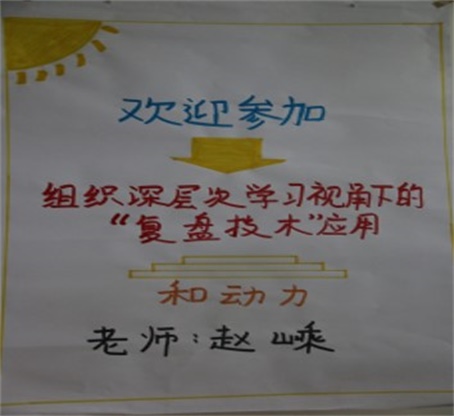 欢迎参加
组织深层次学习视角下的
“复盘技术”应用
和动力
老师：赵嵊